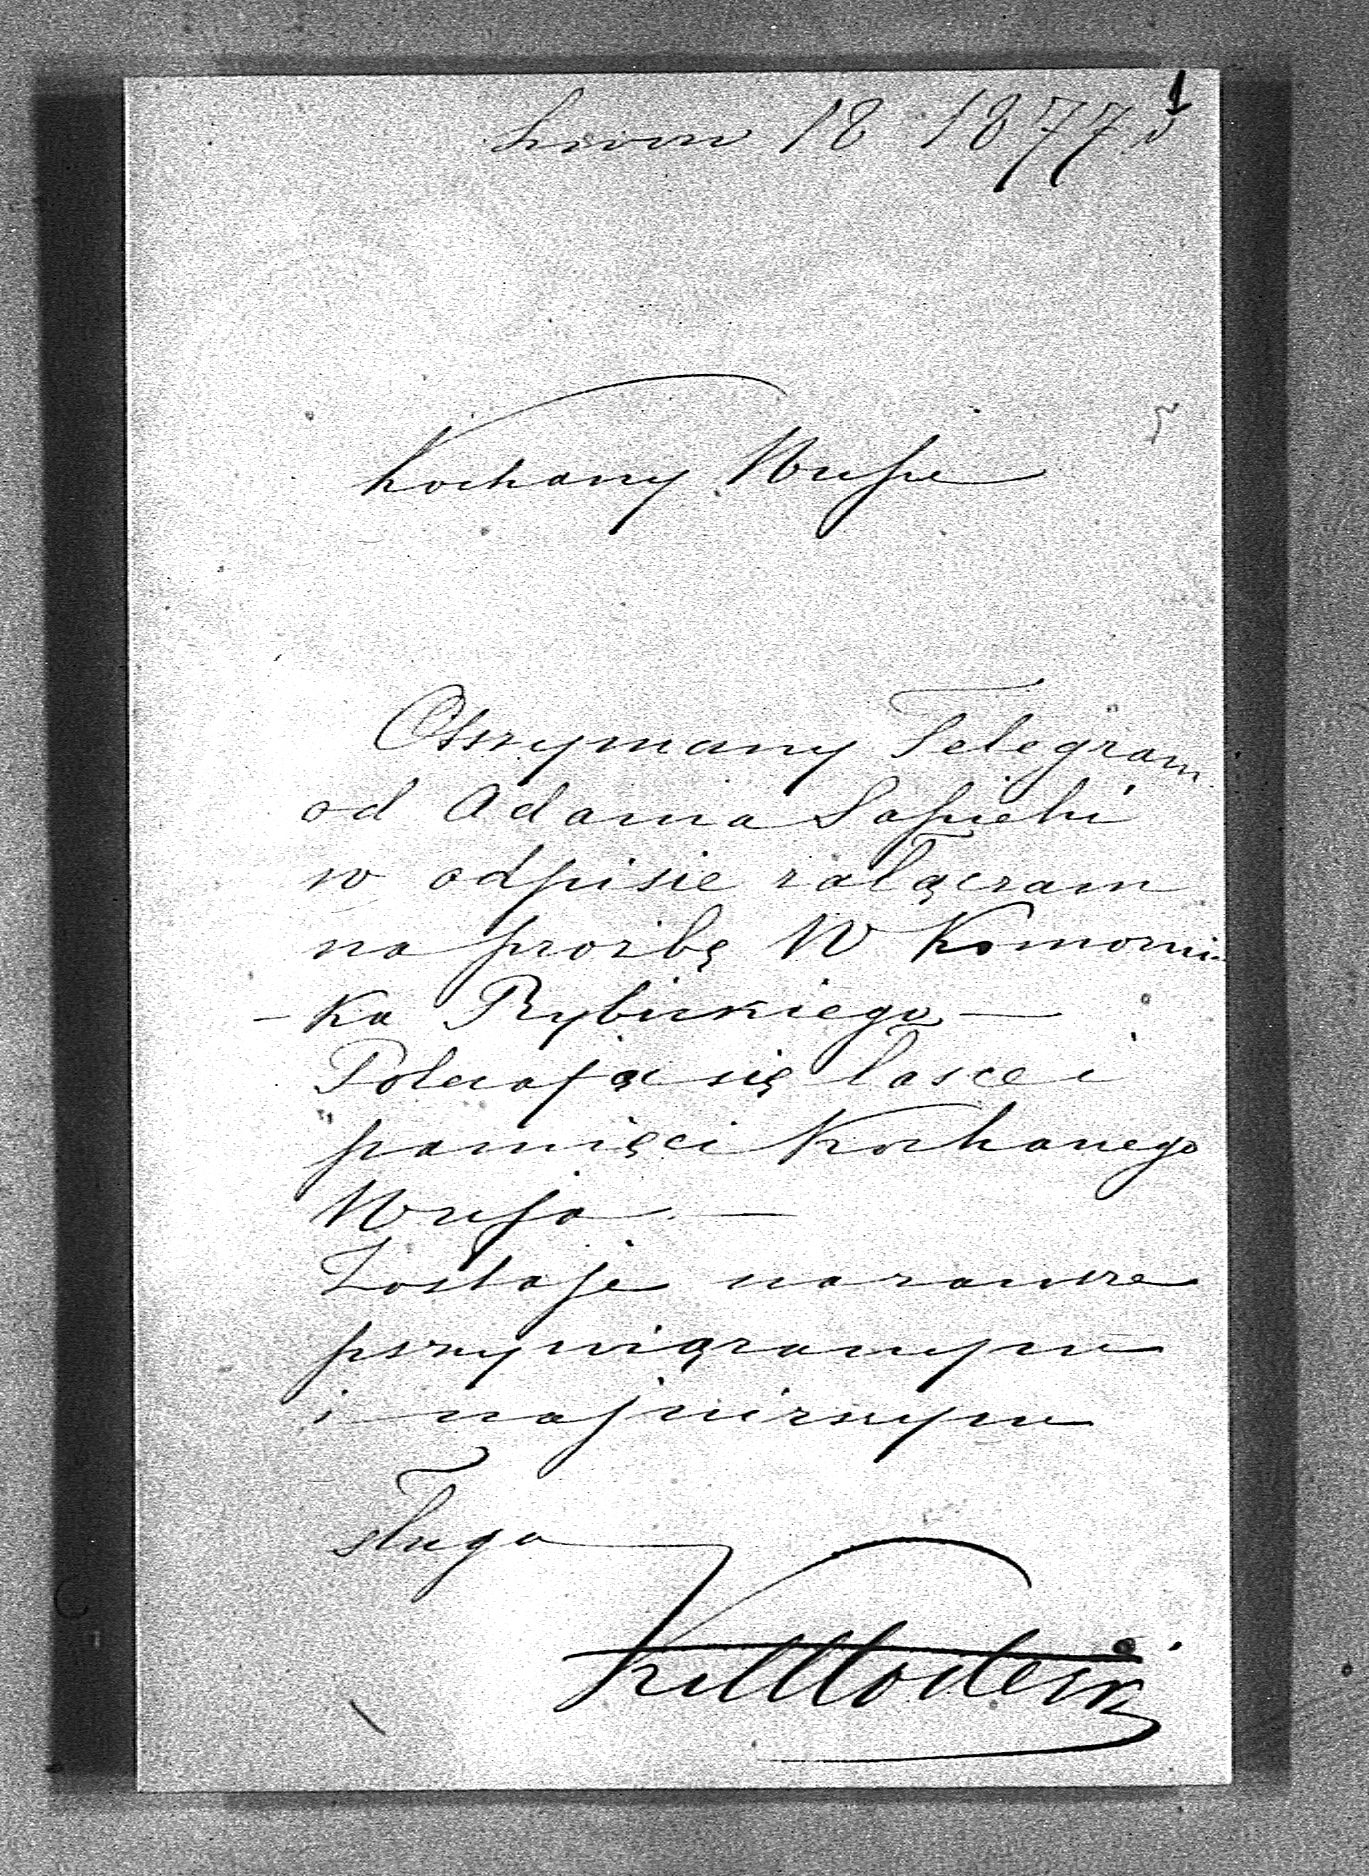 Lwow 18 1877
1
Kochany Wuju
Otrzymany Telegram
od Adama Sapiehi
w odpisie załączam
na prozbę W Komorni-
-ka Rybickiego —
Polecając się łasce i
pamięci Kochanego
Wuja —
Zostaję na zawsze
przywiązanym
i najniższym
sługa